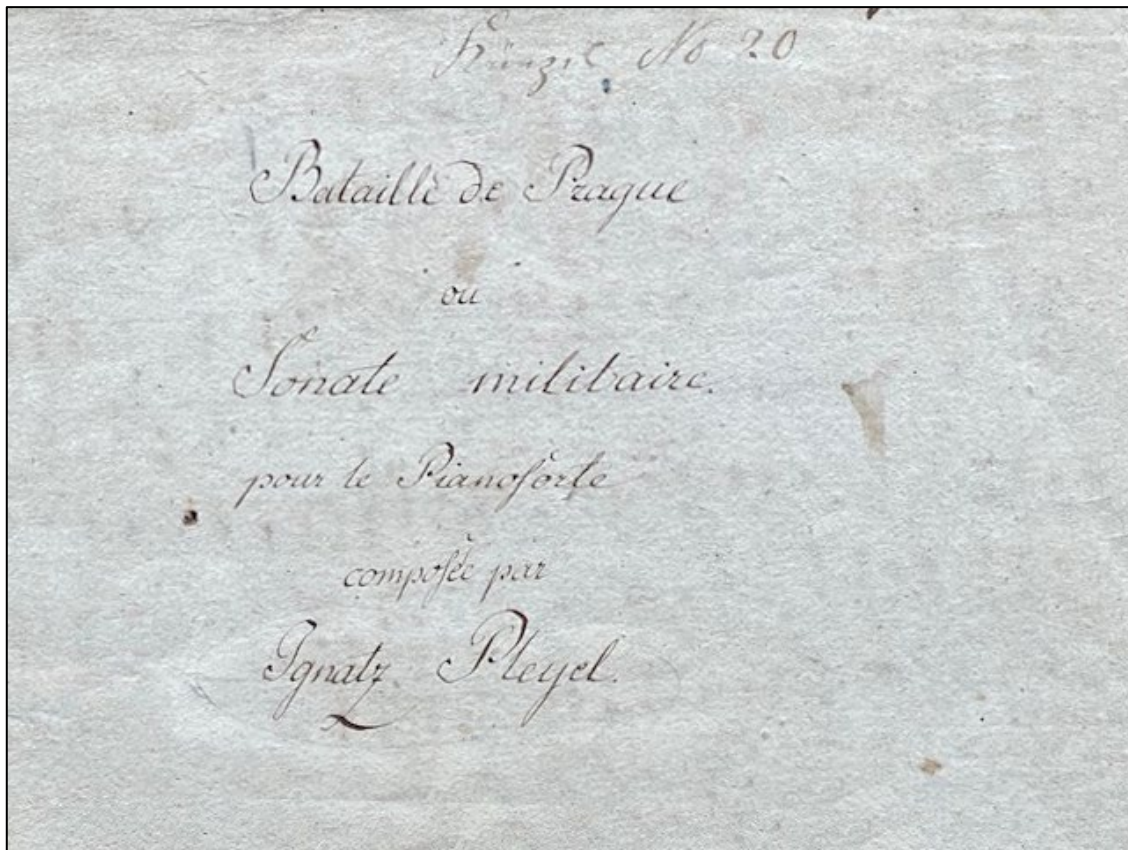 No 20
Bataille de Prague
ou
Sonate militaire.
pour le Pianoforte
composée par
Ignatz Pleyel.